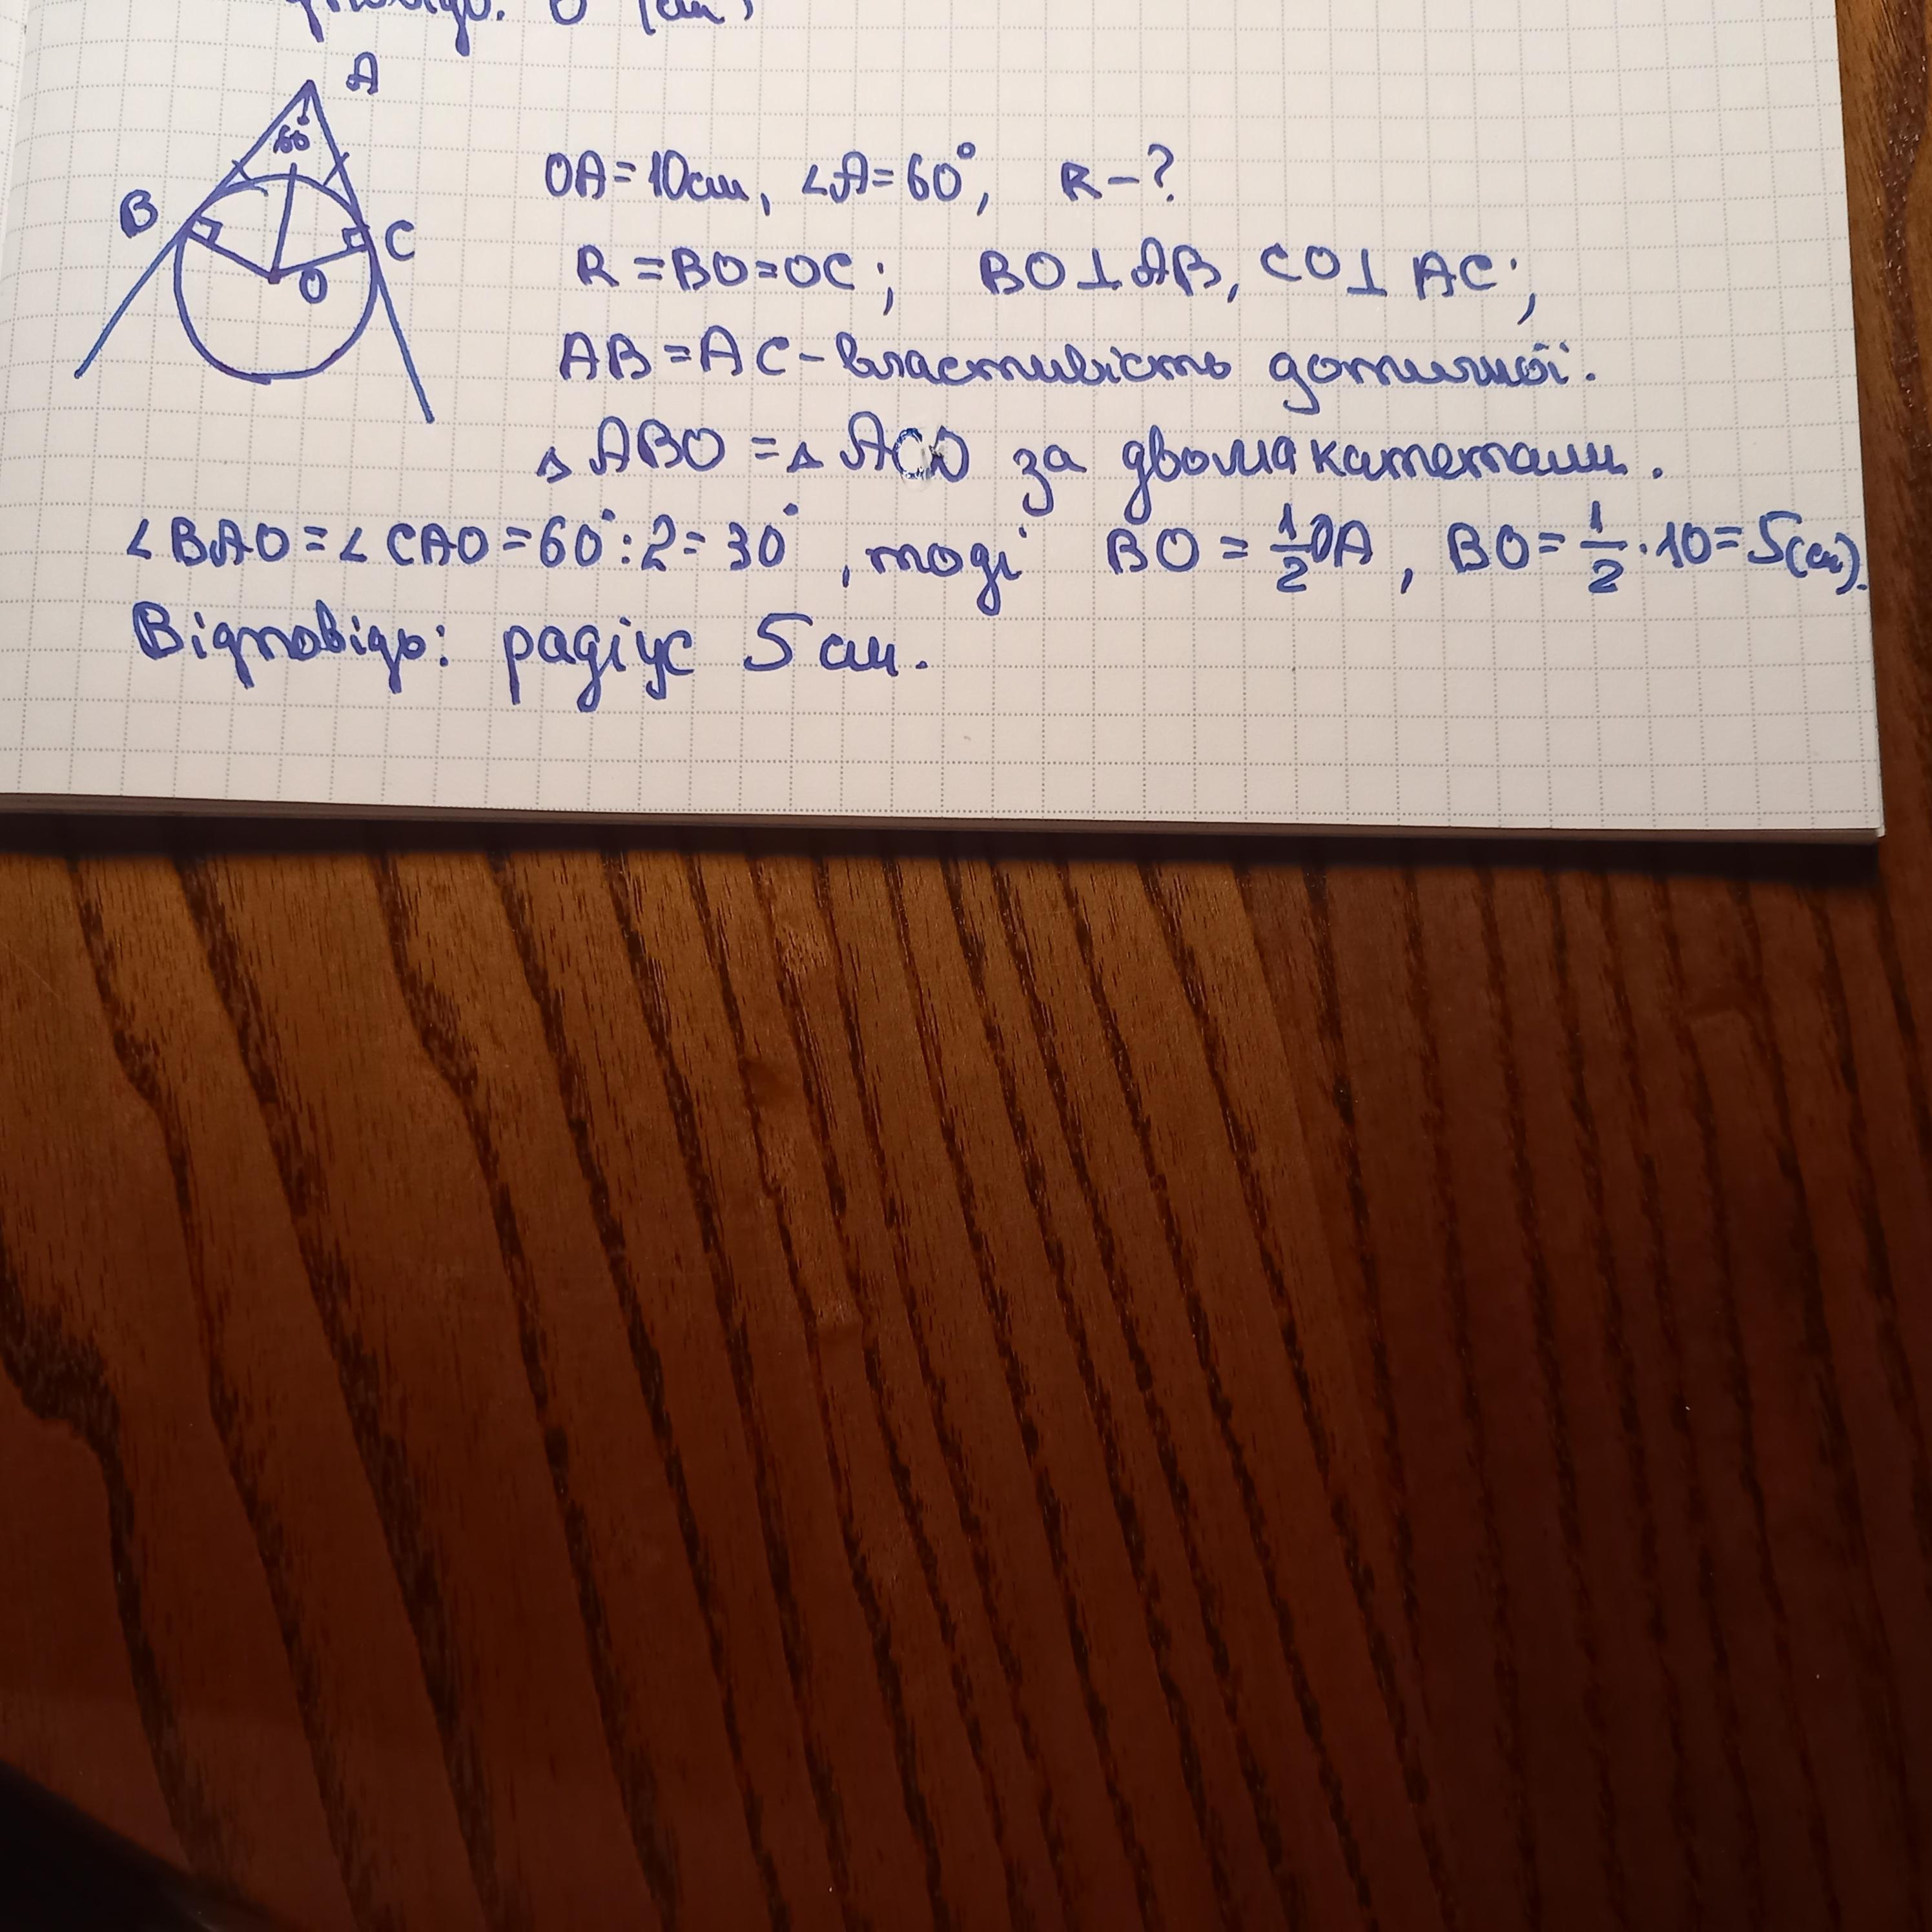 A
60°
B
C
O
OA=10см, ∠A=60°, R-?
R=BO=OC; BO⊥AB, CO⊥AC;
AB=AC-властивість дотичної.
△ABO=△ACO за двома катетами.
∠BAO=∠CAO=60°:2=30°, тоді BO=1/2OA, BO=1/2·10=5(см).
Відповідь: радіус 5 см.